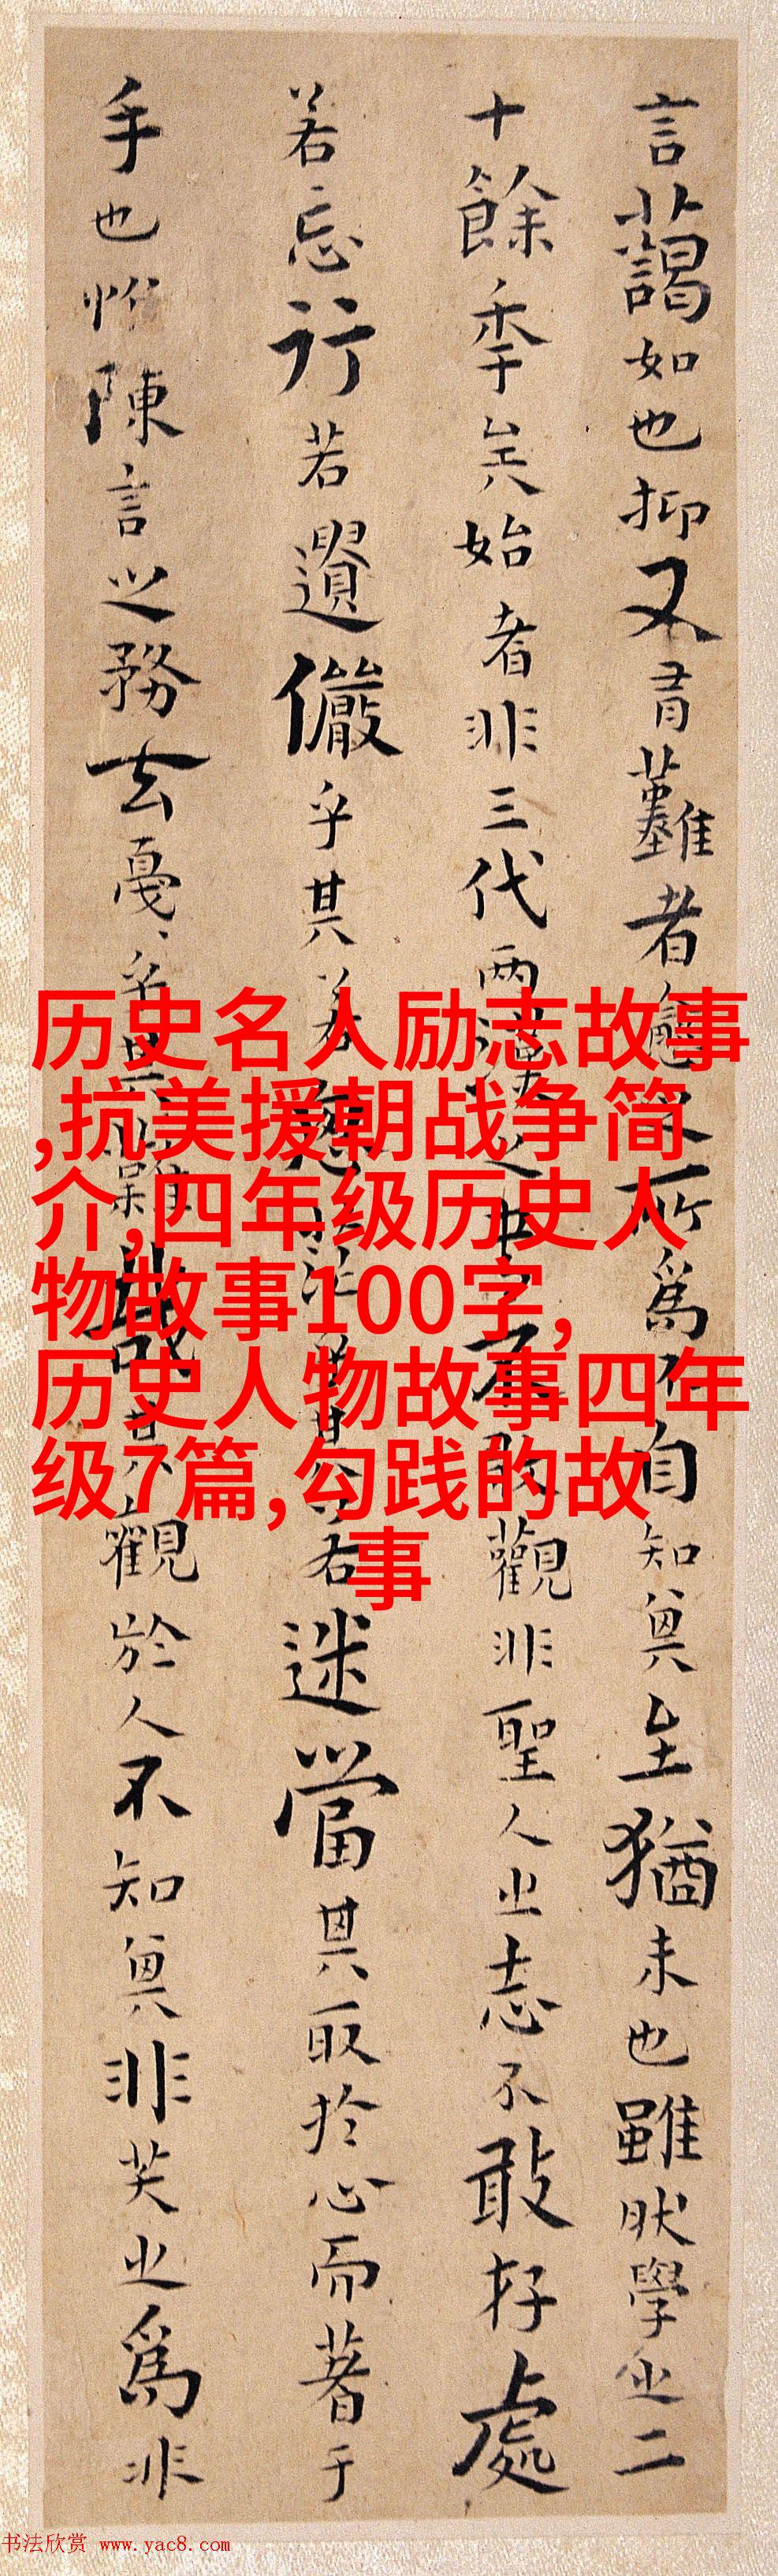 言藹如也抑又有難者愈之所爲不自知其至猶未也雖然學之二
十餘年矣始者非三代兩漢之書不敢觀非聖人之志不敢存處
若忘行若遺儼乎其若思茫乎其若迷當其取於心而著于
手也惟陳言之務去戛〻乎其難哉其觀於人不知其非笑之爲非
历史名人励志故事
,抗美援朝战争简
介,四年级历史人
物故事100字,
历史人物故事四年
级7篇,勾践的故
事
书法欣赏 www.yac8.com